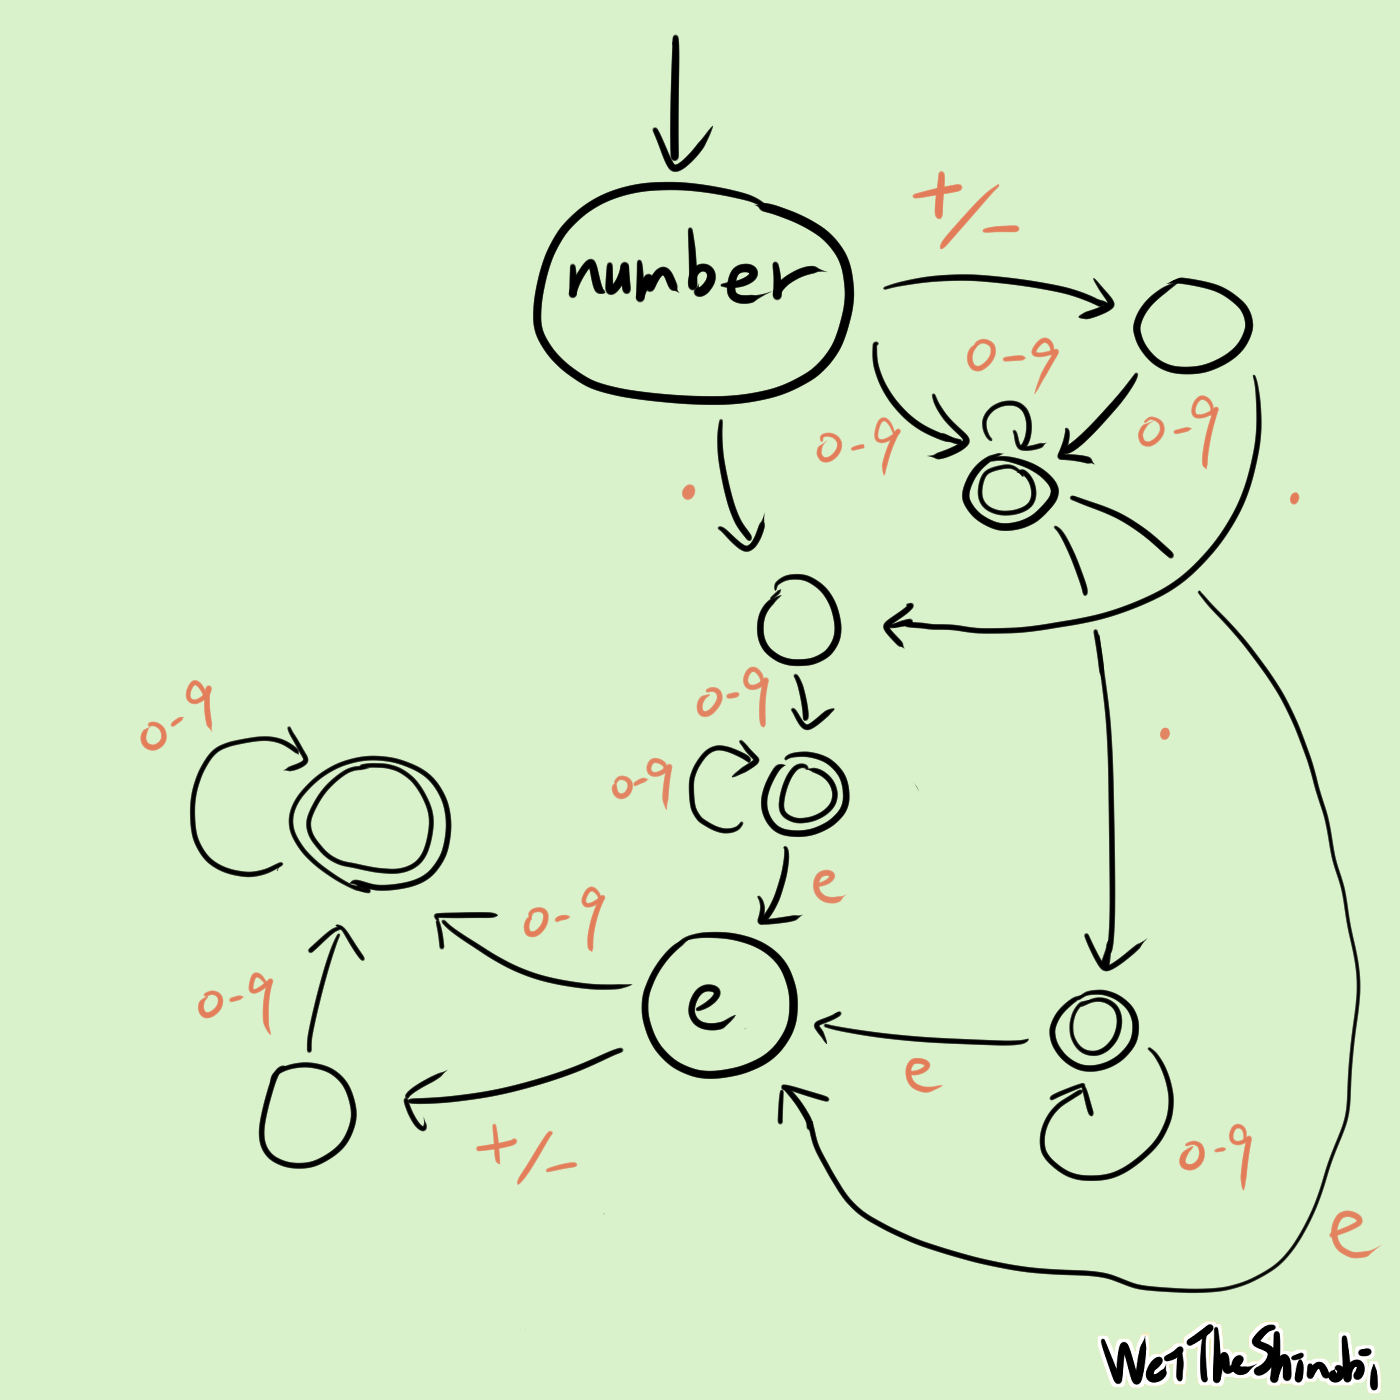 number
+/-
0-9
0-9
0-9
.
.
0-9
0-9
0-9
.
e
0-9
0-9
e
e
+/-
0-9
e
WeiTheShinobi